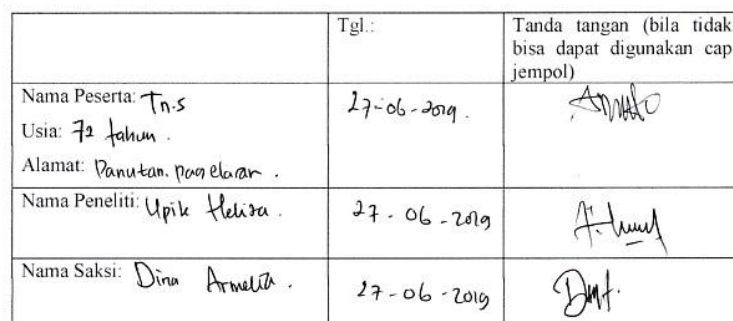 Tgl.: Tanda tangan (bila tidak
bisa dapat digunakan cap
jempol)
Nama Peserta: Tn.S 27-06-2019.
Usia: 72 tahun.
Alamat: Panutan. pagelaran.
Nama Peneliti: Upik Heliza. 27-06-2019
Nama Saksi: Dina Armelia. 27-06-2019